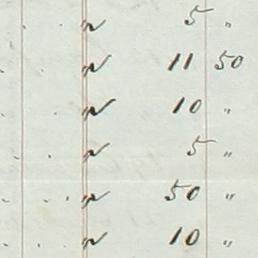 " 5 "
" 11 50
" 10 "
" 5 "
" 50 "
" 10 "